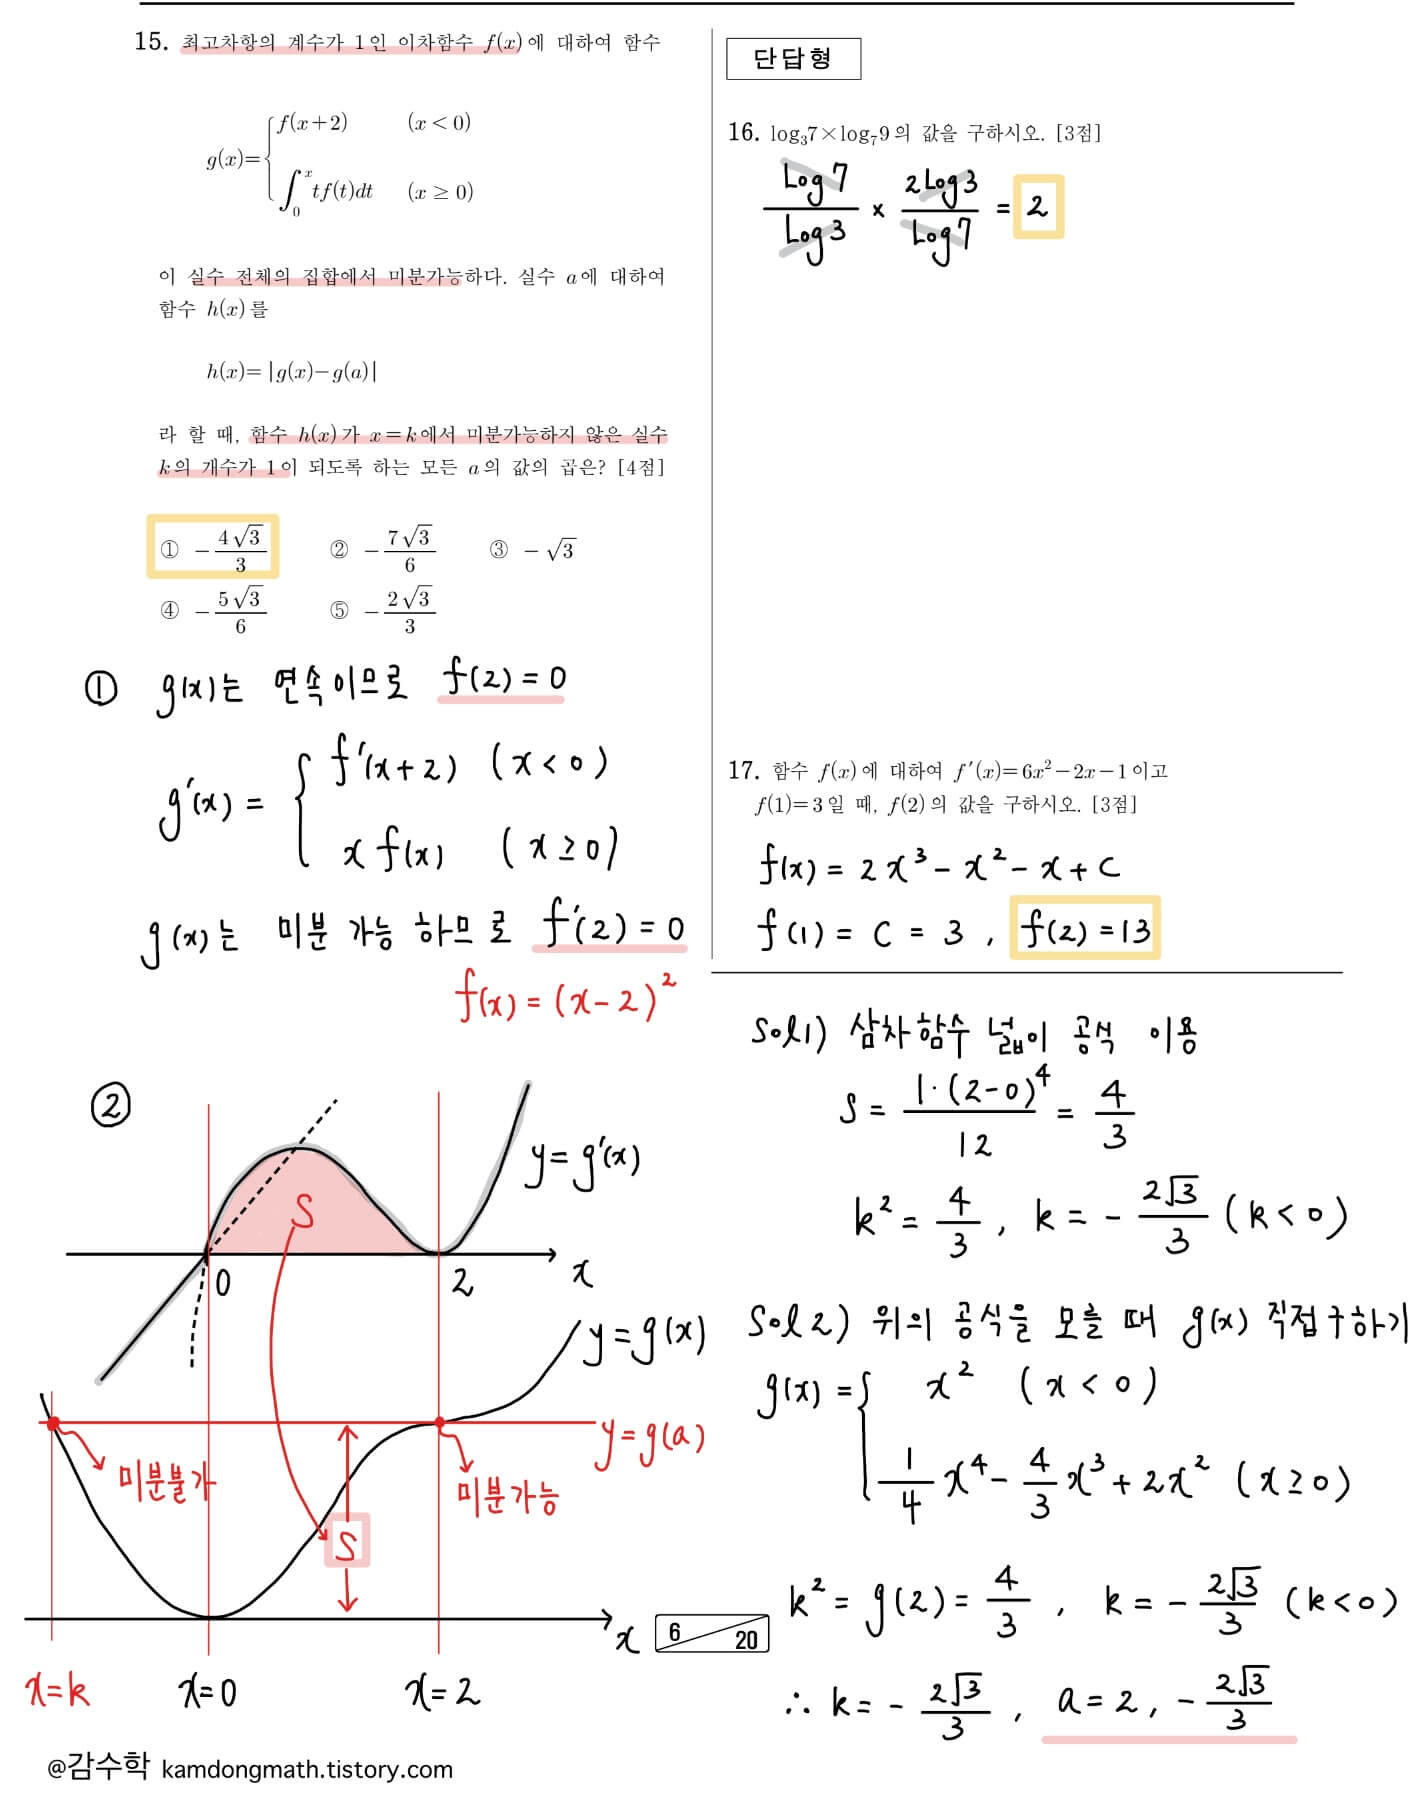 15. 최고차항의 계수가 1인 이차함수 f(x)에 대하여 함수
g(x)= { f(x+2) (x<0)
∫₀ˣ tf(t)dt (x≥0)
이 실수 전체의 집합에서 미분가능하다. 실수 a에 대하여
함수 h(x)를
h(x)=|g(x)-g(a)|
라 할 때, 함수 h(x)가 x=k에서 미분가능하지 않은 실수
k의 개수가 1이 되도록 하는 모든 a의 값의 곱은? [4점]
① -4√3/3 ② -7√3/6 ③ -√3
④ -5√3/6 ⑤ -2√3/3
① g(x)는 연속이므로 f(2)=0
g'(x) = { f'(x+2) (x<0)
x f(x) (x≥0)
g(x)는 미분 가능 하므로 f'(2)=0
f(x)=(x-2)²
②
y=g'(x)
S
0 2 x
y=g(x)
y=g(a)
미분불가
미분가능
S
x
x=k x=0 x=2
@감수학 kamdongmath.tistory.com
단답형
16. log₃7×log₇9의 값을 구하시오. [3점]
Log7/Log3 × 2Log3/Log7 = 2
17. 함수 f(x)에 대하여 f'(x)=6x²-2x-1이고
f(1)=3일 때, f(2)의 값을 구하시오. [3점]
f(x)=2x³-x²-x+C
f(1)=C=3, f(2)=13
Sol1) 삼차함수 넓이 공식 이용
S = 1·(2-0)⁴/12 = 4/3
k²=4/3, k=-2√3/3 (k<0)
Sol2) 위의 공식을 모를 때 g(x) 직접구하기
g(x) = { x² (x<0)
1/4 x⁴ - 4/3 x³ + 2x² (x≥0)
k²=g(2)=4/3, k=-2√3/3 (k<0)
∴ k=-2√3/3, a=2, -2√3/3
6 20